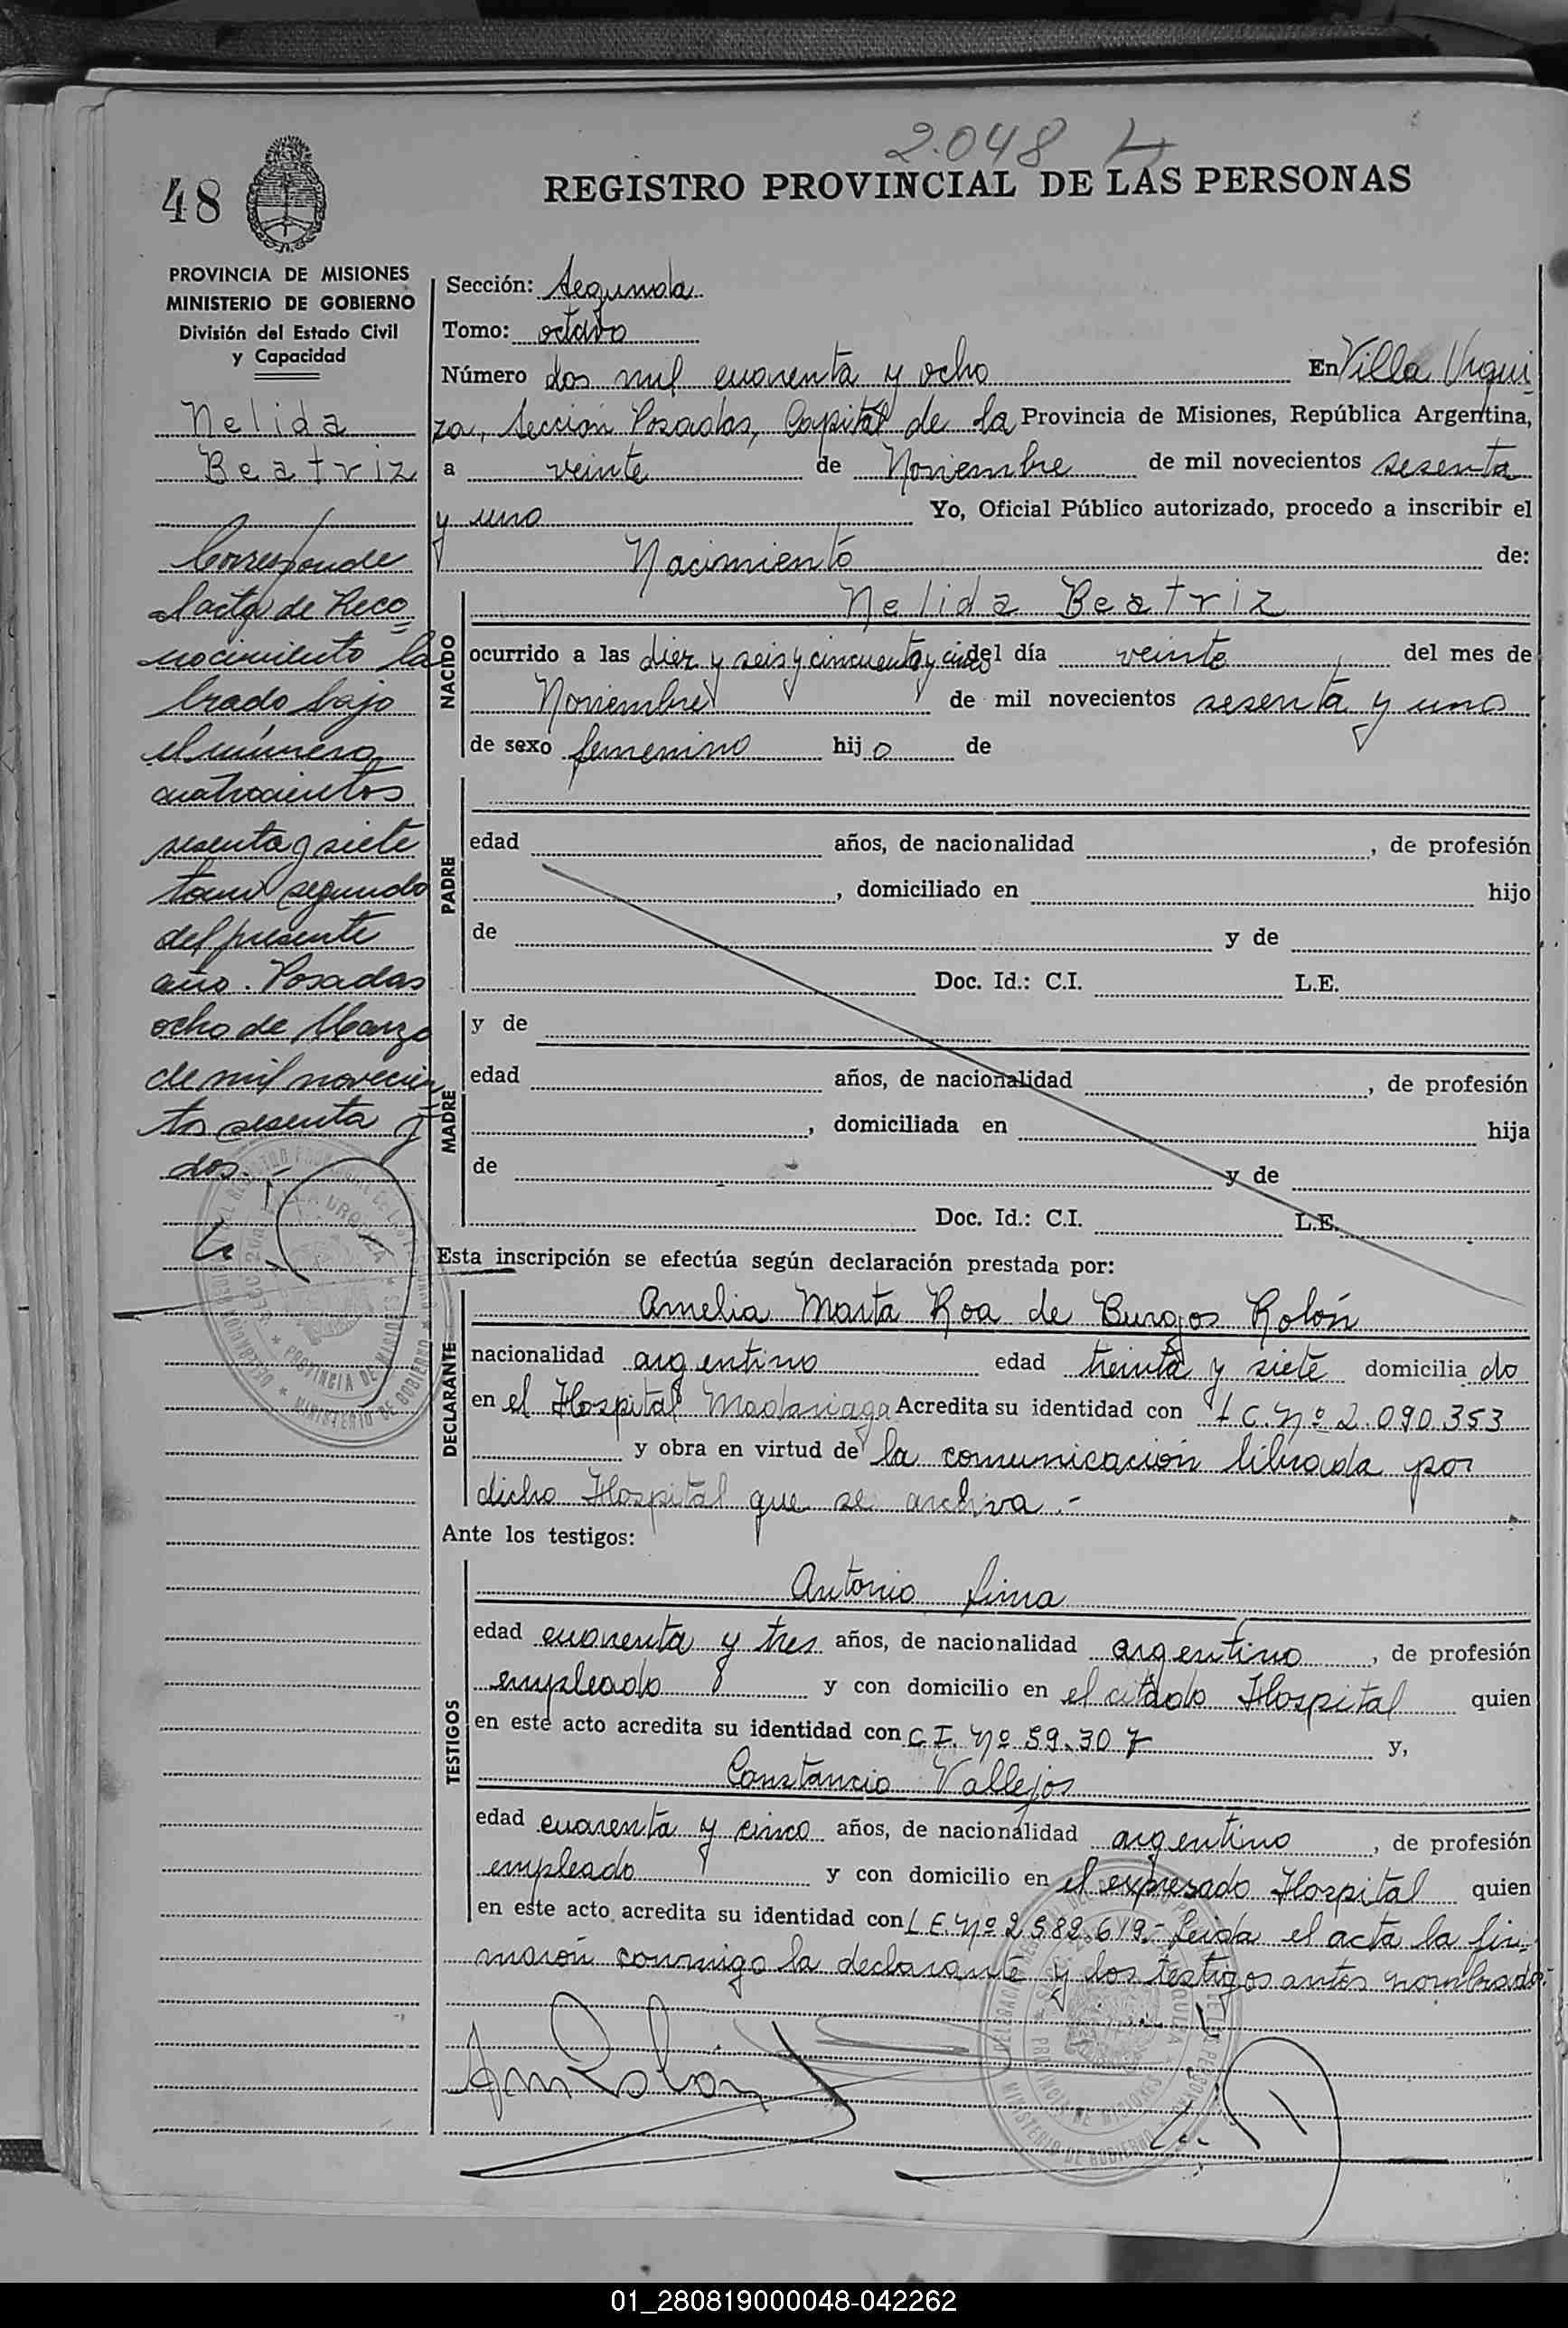 2.048
48
REGISTRO PROVINCIAL DE LAS PERSONAS
PROVINCIA DE MISIONES
MINISTERIO DE GOBIERNO
División del Estado Civil
y Capacidad
Nelida
Beatriz
Corresponde
al acta de Reco=
nocimiento la
brado bajo
el número
cuatrocientos
sesenta y siete
tomo segundo
del presente
año. Posadas
ocho de Marzo
de mil novecien=
tos sesenta y
dos.-
Sección: Segunda
Tomo: octavo
Número dos mil cuarenta y ocho En Villa Urqui
za, Sección Posadas, Capital de la Provincia de Misiones, República Argentina,
a veinte de Noviembre de mil novecientos sesenta
y uno Yo, Oficial Público autorizado, procedo a inscribir el
Nacimiento de:
NACIDO
Nelida Beatriz
ocurrido a las diez y seis y cincuenta y cinco del día veinte del mes de
Noviembre de mil novecientos sesenta y uno
de sexo femenino hijo de
PADRE
edad años, de nacionalidad , de profesión
, domiciliado en hijo
de y de
Doc. Id.: C.I. L.E.
MADRE
y de
edad años, de nacionalidad , de profesión
, domiciliada en hija
de y de
Doc. Id.: C.I. L.E.
Esta inscripción se efectúa según declaración prestada por:
DECLARANTE
Amelia Marta Roa de Burgos Rolón
nacionalidad argentino edad treinta y siete domiciliado
en el Hospital Madariaga Acredita su identidad con L C. Nº 2.090.353
y obra en virtud de la comunicación librada por
dicho Hospital que se archiva.-
Ante los testigos:
TESTIGOS
Antonio Lima
edad cuarenta y tres años, de nacionalidad argentino, de profesión
empleado y con domicilio en el citado Hospital quien
en este acto acredita su identidad con C I. Nº 59.307 y,
Constancio Vallejos
edad cuarenta y cinco años, de nacionalidad argentino, de profesión
empleado y con domicilio en el expresado Hospital quien
en este acto acredita su identidad con L E. Nº 2.582.619.- Leida el acta la fir=
maron conmigo la declarante y los testigos antes nombrados.-
PROVINCIA DE MISIONES
MINISTERIO DE GOBIERNO
01_280819000048-042262